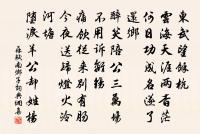 東武望餘杭
雲海天涯兩杳茫
何日功成名遂了
還鄉
醉笑陪公三萬場
不用訴離觴
痛飲從來別有腸
今夜送歸燈火冷
河塘
墮淚羊公卻姓楊
蘇軾南鄉子詞典網